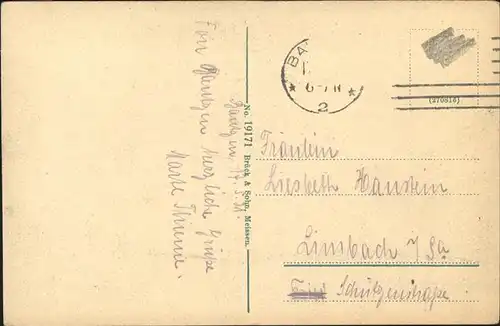 Bautzen, 17.5.21.
Von Bautzen herzliche Grüße
Marie Thieme.
No. 19171 Brück & Sohn, Meissen.
BA
6-7 N
* 2 *
(270816)
Fräulein
Liesbeth Haustein
Limbach i/Sa
Schützenstraße